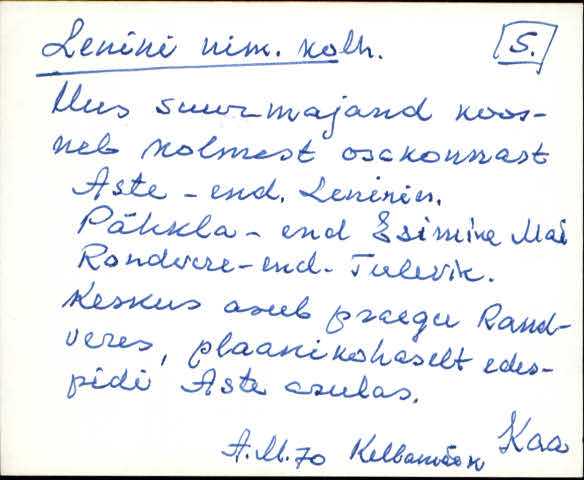 Lenini nim. kolh. S.
Uus suurmajand koos-
neb kolmest osakonnast
Aste - end. Lenini n.
Pähkla - end Esimine Mai
Randvere - end. Tulevik.
Keskus asub praegu Rand-
veres, plaanikohaselt edes-
pidi Aste asulas.
Kaa
A.M.70